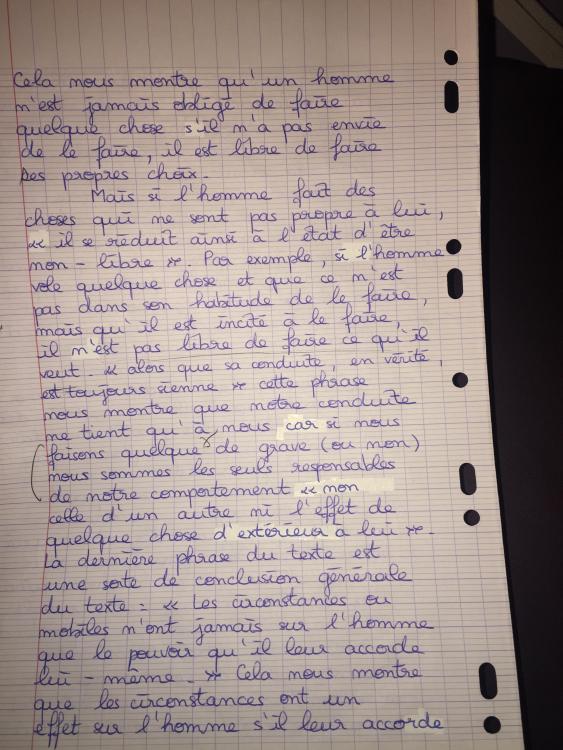 Cela nous montre qu'un homme
n'est jamais obligé de faire
quelque chose s'il n'a pas envie
de le faire, il est libre de faire
ses propres choix.
Mais si l'homme fait des
choses qui ne sont pas propre à lui,
« il se réduit ainsi à l'état d'être
non-libre ». Par exemple, si l'homme
vole quelque chose et que ce n'est
pas dans son habitude de le faire,
mais qu'il est incité à le faire,
il n'est pas libre de faire ce qu'il
veut. « alors que sa conduite, en vérité,
est toujours sienne » cette phrase
nous montre que notre conduite
ne tient qu'à nous car si nous
faisons quelque de grave (ou non)
nous sommes les seuls responsables
de notre comportement « non
celle d'un autre ni l'effet de
quelque chose d'extérieur à lui ».
La dernière phrase du texte est
une sorte de conclusion générale
du texte : « Les circonstances ou
mobiles n'ont jamais sur l'homme
que le pouvoir qu'il leur accorde
lui-même. » Cela nous montre
que les circonstances ont un
effet sur l'homme s'il leur accorde